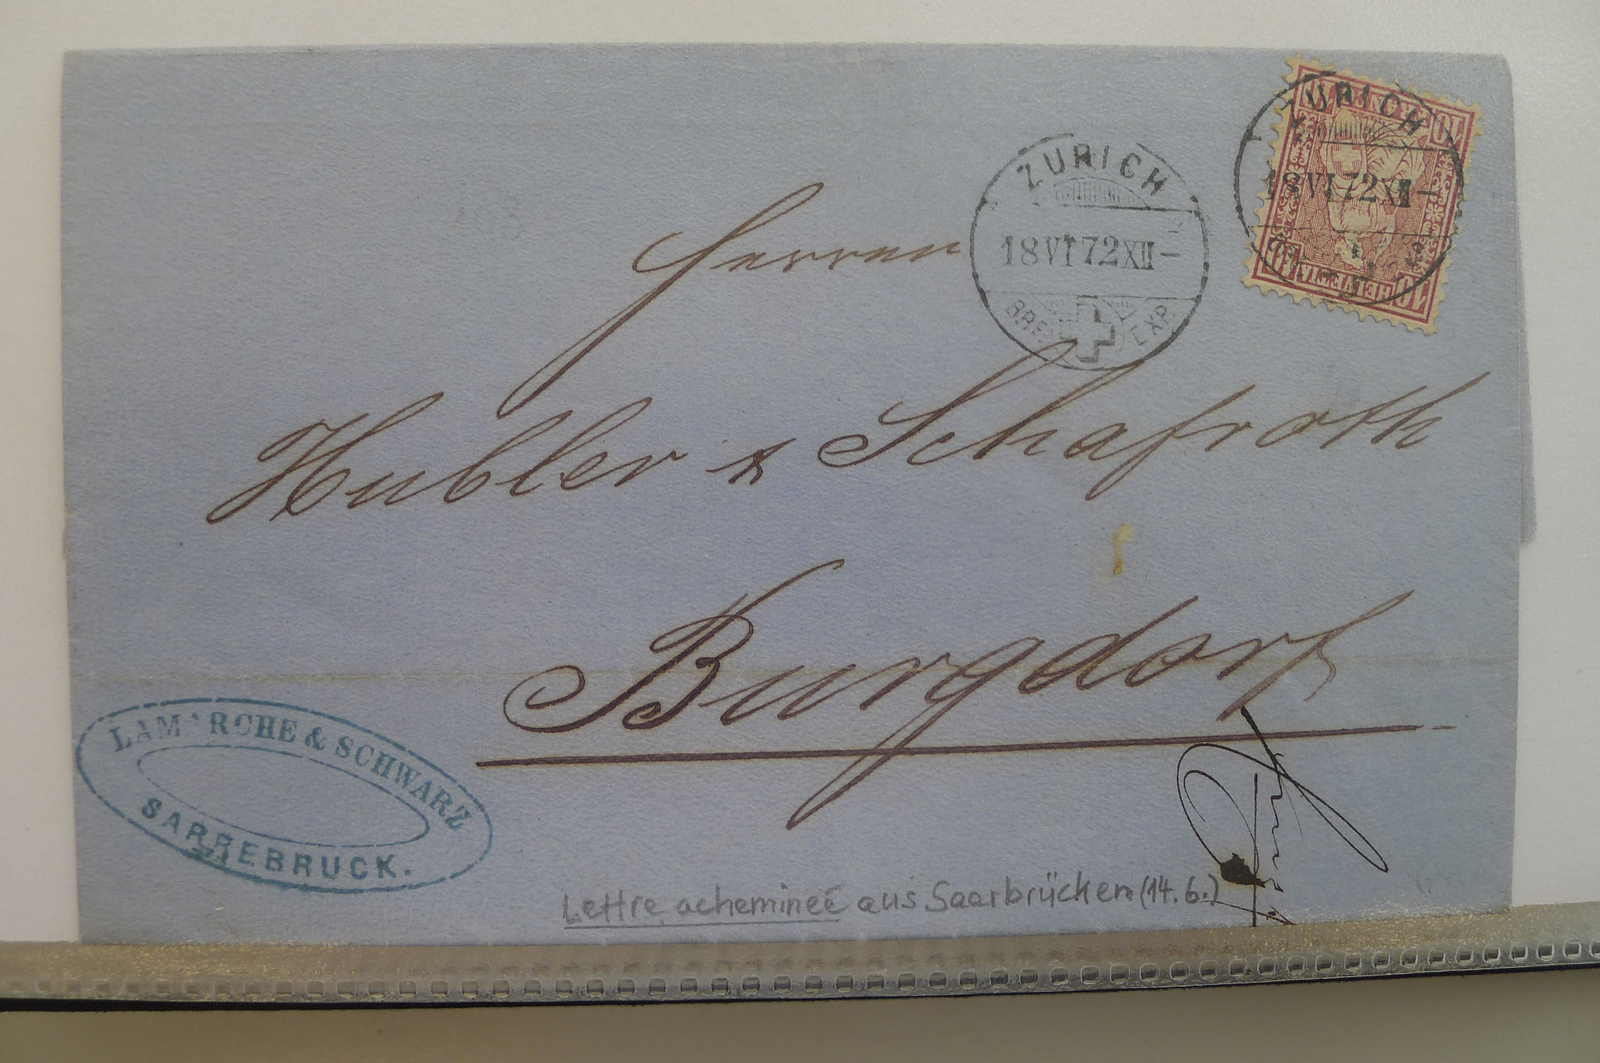 ZURICH
18 VI 72 XII –
BRF. EXP.
ZURICH
18 VI 72 XII –
10
HELVETIA
10
Herren
Hubler & Schafroth
Burgdorf
LAMARCHE & SCHWARZ
SARREBRUCK.
Lettre acheminée aus Saarbrücken (14.6.)